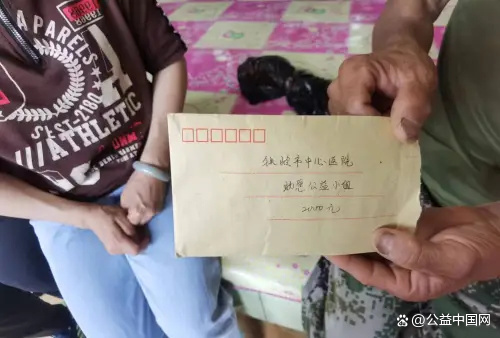 PARELS
ATHLETIC
铁岭市中心医院
助愿公益小组
2000元
@公益中国网